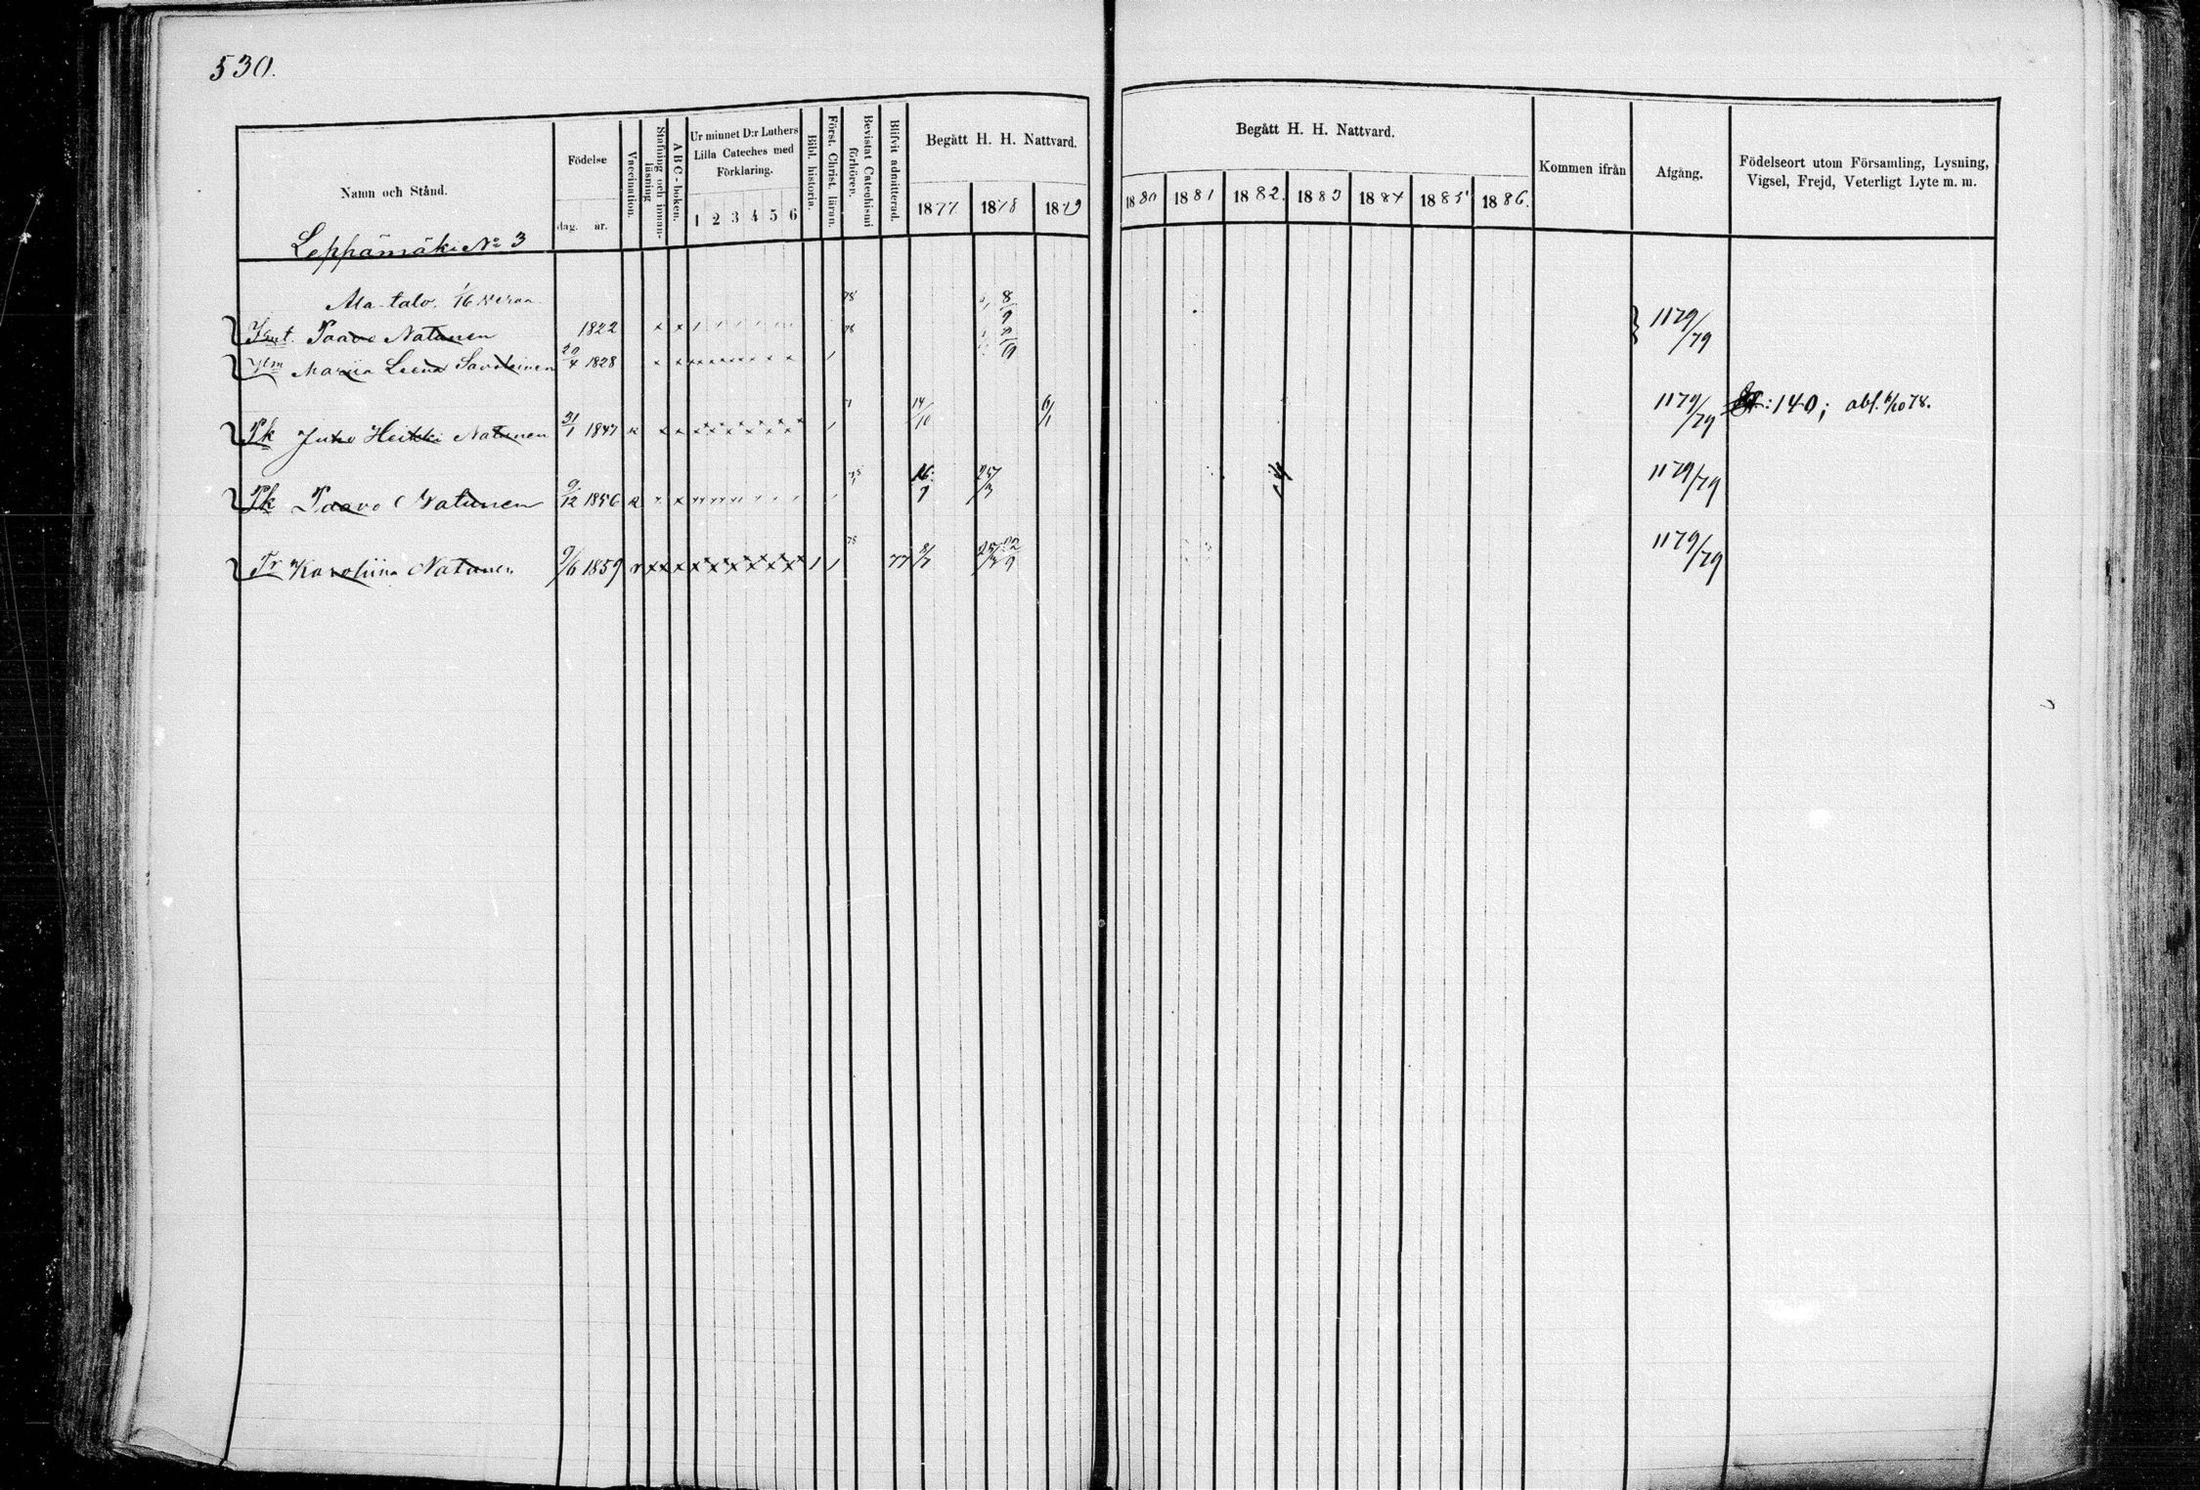 530.
Namn och Stånd.
Födelse
dag. år.
Vaccination.
Stafning och innanläsning
ABC-boken.
Ur minnet D:r Luthers Lilla Cateches med Förklaring.
1 2 3 4 5 6
Bibl. historia.
Först. Christ. läran.
Bevistat Catechismi förhörer.
Blifvit admitterad.
Begått H. H. Nattvard.
1877 1878 1879
Begått H. H. Nattvard.
1880 1881 1882. 1883 1884 1885 1886.
Kommen ifrån
Afgång.
Födelseort utom Församling, Lysning, Vigsel, Frejd, Veterligt Lyte m. m.
Leppämäki No 3
Ala-talo. 1/16
Paavo Natunen 1822 1179/79
Maria Leena Savolainen 20/4 1828
Pk Juho Heikki Natunen 31/1 1847 14/10 6/1 1179/79 :140; abl. 6/10 78.
Pk Paavo Natunen 9/12 1856 25/3 1179/79
Tr Karoliina Natunen 9/6 1859 77 8/7 1179/79